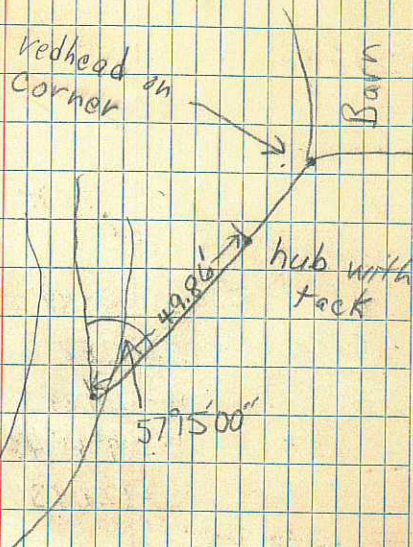 redhead on
corner
Barn
hub with
tack
49.86'
57°15'00"